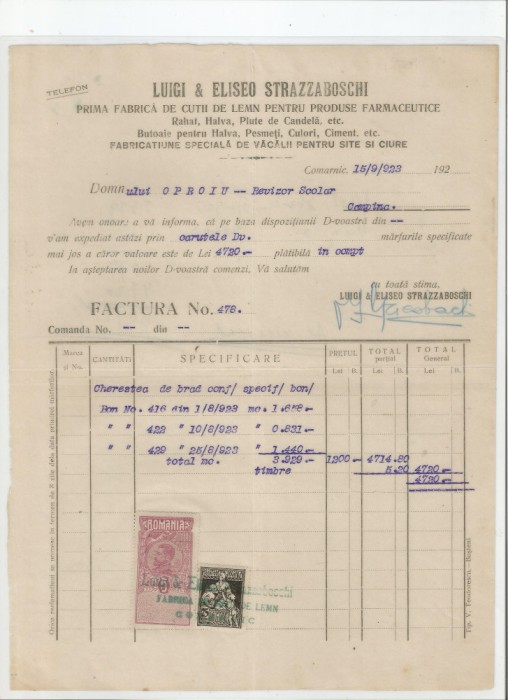 TELEFON
LUIGI & ELISEO STRAZZABOSCHI
PRIMA FABRICĂ DE CUTII DE LEMN PENTRU PRODUSE FARMACEUTICE
Rahat, Halva, Plute de Candelă, etc.
Butoaie pentru Halva, Pesmeți, Culori, Ciment, etc.
FABRICAȚIUNE SPECIALĂ DE VĂCĂLII PENTRU SITE SI CIURE
Comarnic, 15/9/923 192
Domnului OPROIU -- Revizor Scolar
Campina.
Avem onoare a vă informa, că pe baza dispozițiunii D-voastră din --
v'am expediat astăzi prin carutele Dv. mărfurile specificate
mai jos a căror valoare este de Lei 4720.- plătibilă in compt
In așteptarea noilor D-voastră comenzi, Vă salutăm
cu toată stima,
LUIGI & ELISEO STRAZZABOSCHI
FACTURA No. 478.
Comanda No. -- din --
Marca și No. CANTITATI SPECIFICARE PREȚUL TOTAL parțial TOTAL General
Lei B. Lei B. Lei B.
Cherestea de brad conf/ specif/ bon/
Bon No. 416 din 1/8/923 mc. 1.658.-
" " 422 " 10/8/923 " 0.831.-
" " 429 " 25/8/923 " 1.440.-
total mc. 3.929.- 1200.- 4714.80
timbre 5.20 4720.-
4720.-
ROMANIA
Luigi & Strazzaboschi
FABRICA DE LEMN
Tip. V. Teodorescu.